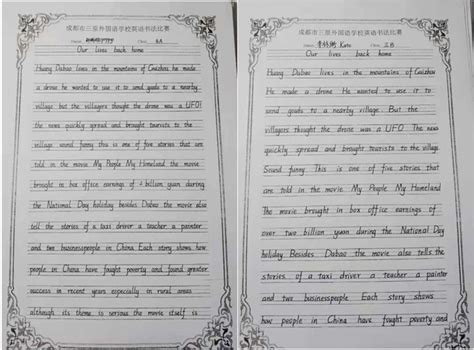 成都市三原外国语学校英语书法比赛
Name Class 8A
Our lives back home
Huang Dabao lives in the mountains of Guizhou he made
a drone he wanted to use it to send goods to a nearby
village but the villagers thought the drone was a UFO!
the news quickly spread and brought tourists to the
village sound funny this is one of five stories that are
told in the movie My People My Homeland the movie
brought in box office earnings of 2 billion yuan during
the National Day holiday besides Dabao the movie also
tell the stories of a taxi driver a teacher a painter
and two businesspeople in China Each story shows how
people in China have fought poverty and found greater
success in recent years especially in rural areas
although its theme is serious the movie itself is
成都市三原外国语学校英语书法比赛
Name Kate Class
Our lives back home
Huang Dabao lives in the mountains of Guizhou
He made a drone He wanted to use it to
send goods to a nearby village. But the
villagers thought the drone was a UFO The news
quickly spread and brought tourists to the village
Sound funny This is one of five stories that
are told in the movie My People My Homeland
The movie brought in box office earnings of
over two billion yuan during the National Day
holiday Besides Dabao the movie also tells the
stories of a taxi driver a teacher a painter
and two businesspeople Each story shows
how people in China have fought poverty and